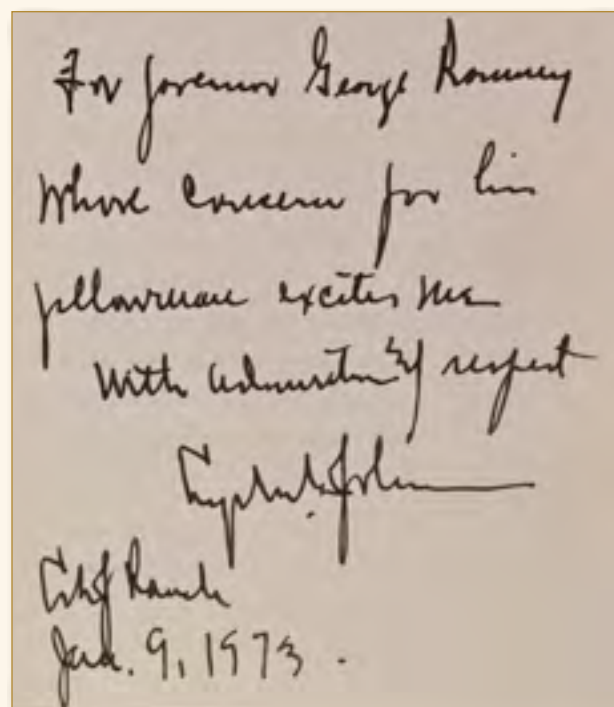 For Governor George Romney
Whose concern for his
fellowman excites me
With admiration & respect
Lyndon B. Johnson
LBJ Ranch
Jan. 9, 1973.